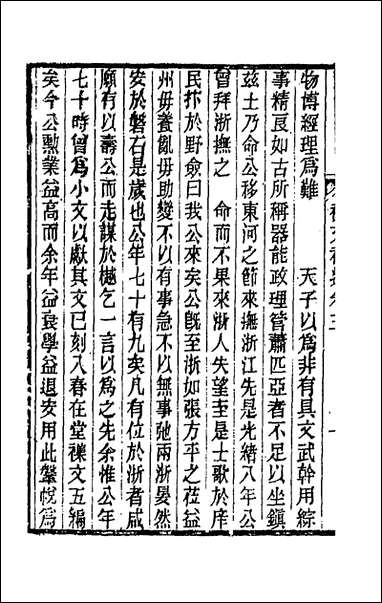 物博經理爲難　天子以爲非有具文武幹用綜
事精良如古所稱器能政理管蕭匹亞者不足以坐鎭
茲土乃命公移東河之節來撫浙江先是光緖八年公
曾拜浙撫之　命而不果來浙人失望至是士歌於庠
民抃於野僉曰我公來矣公旣至浙如張方平之莅益
州毋養亂毋助變不以有事急不以無事弛兩浙晏然
安於磐石是歲也公年七十有九矣凡有位於浙者咸
願有以壽公而走謀於樾乞一言以爲之先余惟公年
七十時曾爲小文以獻其文已刻入春在堂襍文五編
矣今公勳業益高而余年益衰學益退安用此鞶帨爲